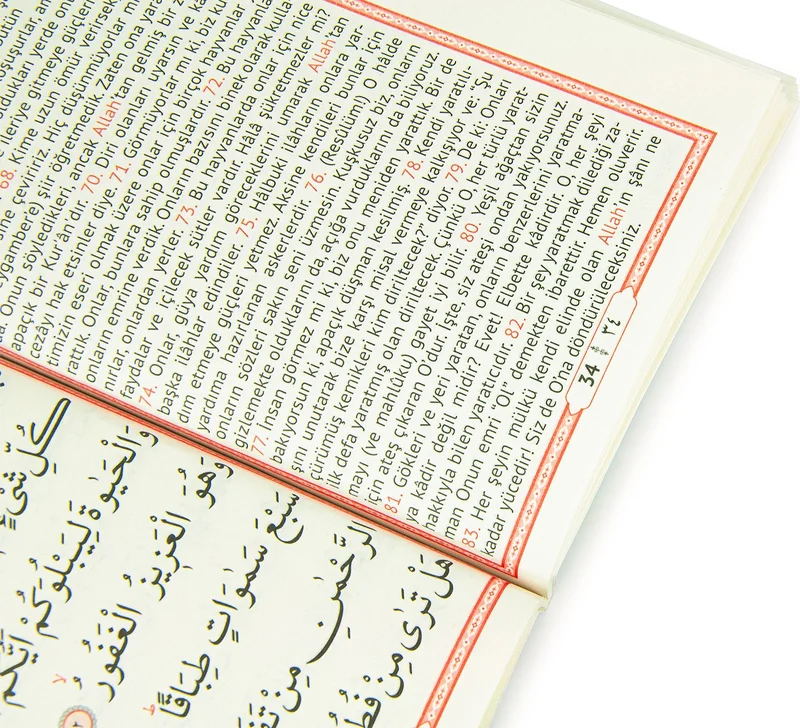 tün
oşuşurlar, an
adıkları yerde on
ileriye gitmeye güçler
68. Kime uzun ömür verirsek
ne çeviririz. Hiç düşünmüyorlar m
ygambere) şiir öğretmedik. Zaten ona ya
a. Onun söyledikleri, ancak Allah'tan gelmiş bir z
apaçık bir Kur'ân'dır. 70. Diri olanları uyarsın ve kâ
cezâyı hak etsinler diye. 71. Görmüyorlar mı ki biz ku
timizin eseri olmak üzere onlar için birçok hayvanlar
rattık. Onlar, bunlara sahip olmuşlardır. 72. Bu hayvanla
onların emrine verdik. Onların bazısını binek olarak kulla
nırlar, onlardan yerler. 73. Bu hayvanlarda onlar için nice
faydalar ve içilecek sütler vardır. Hâlâ şükretmezler mi?
74. Onlar, güya yardım göreceklerini umarak Allah'tan
başka ilâhlar edindiler. 75. Hâlbuki ilâhların onlara yar-
dım etmeye güçleri yetmez. Aksine kendileri bunlar için
yardıma hazırlanan askerlerdir. 76. (Resûlüm!) O hâlde
onların sözleri sakın seni üzmesin. Kuşkusuz biz, onların
gizlemekte olduklarını da, açığa vurduklarını da biliyoruz.
77. İnsan görmez mi ki, biz onu meniden yarattık. Bir de
bakıyorsun ki, apaçık düşman kesilmiş. 78. Kendi yaratılı-
şını unutarak bize karşı misal vermeye kalkışıyor ve: “Şu
çürümüş kemikleri kim diriltecek?” diyor. 79. De ki: Onları
ilk defa yaratmış olan diriltecek. Çünkü O, her türlü yarat-
mayı (ve mahlûku) gayet iyi bilir. 80. Yeşil ağaçtan sizin
için ateş çıkaran O'dur. İşte, siz ateşi ondan yakıyorsunuz.
81. Gökleri ve yeri yaratan, onların benzerlerini yaratma-
ya kâdir değil midir? Evet! Elbette kâdirdir. O, her şeyi
hakkıyla bilen yaratıcıdır. 82. Bir şey yaratmak dilediği za-
man Onun emri “Ol” demekten ibarettir. Hemen oluverir.
83. Her şeyin mülkü kendi elinde olan Allah'ın şânı ne
kadar yücedir! Siz de O'na döndürüleceksiniz.
34 ٣٤
كُلِّ شَيْءٍ
وَالْحَيٰوةَ لِيَبْلُوَكُمْ اَيُّكُمْ
وَهُوَ الْعَزِيزُ الْغَفُورُ
سَبْعَ سَمٰوَاتٍ طِبَاقًا
الرَّحْمٰنِ مِنْ
هَلْ تَرٰى مِنْ